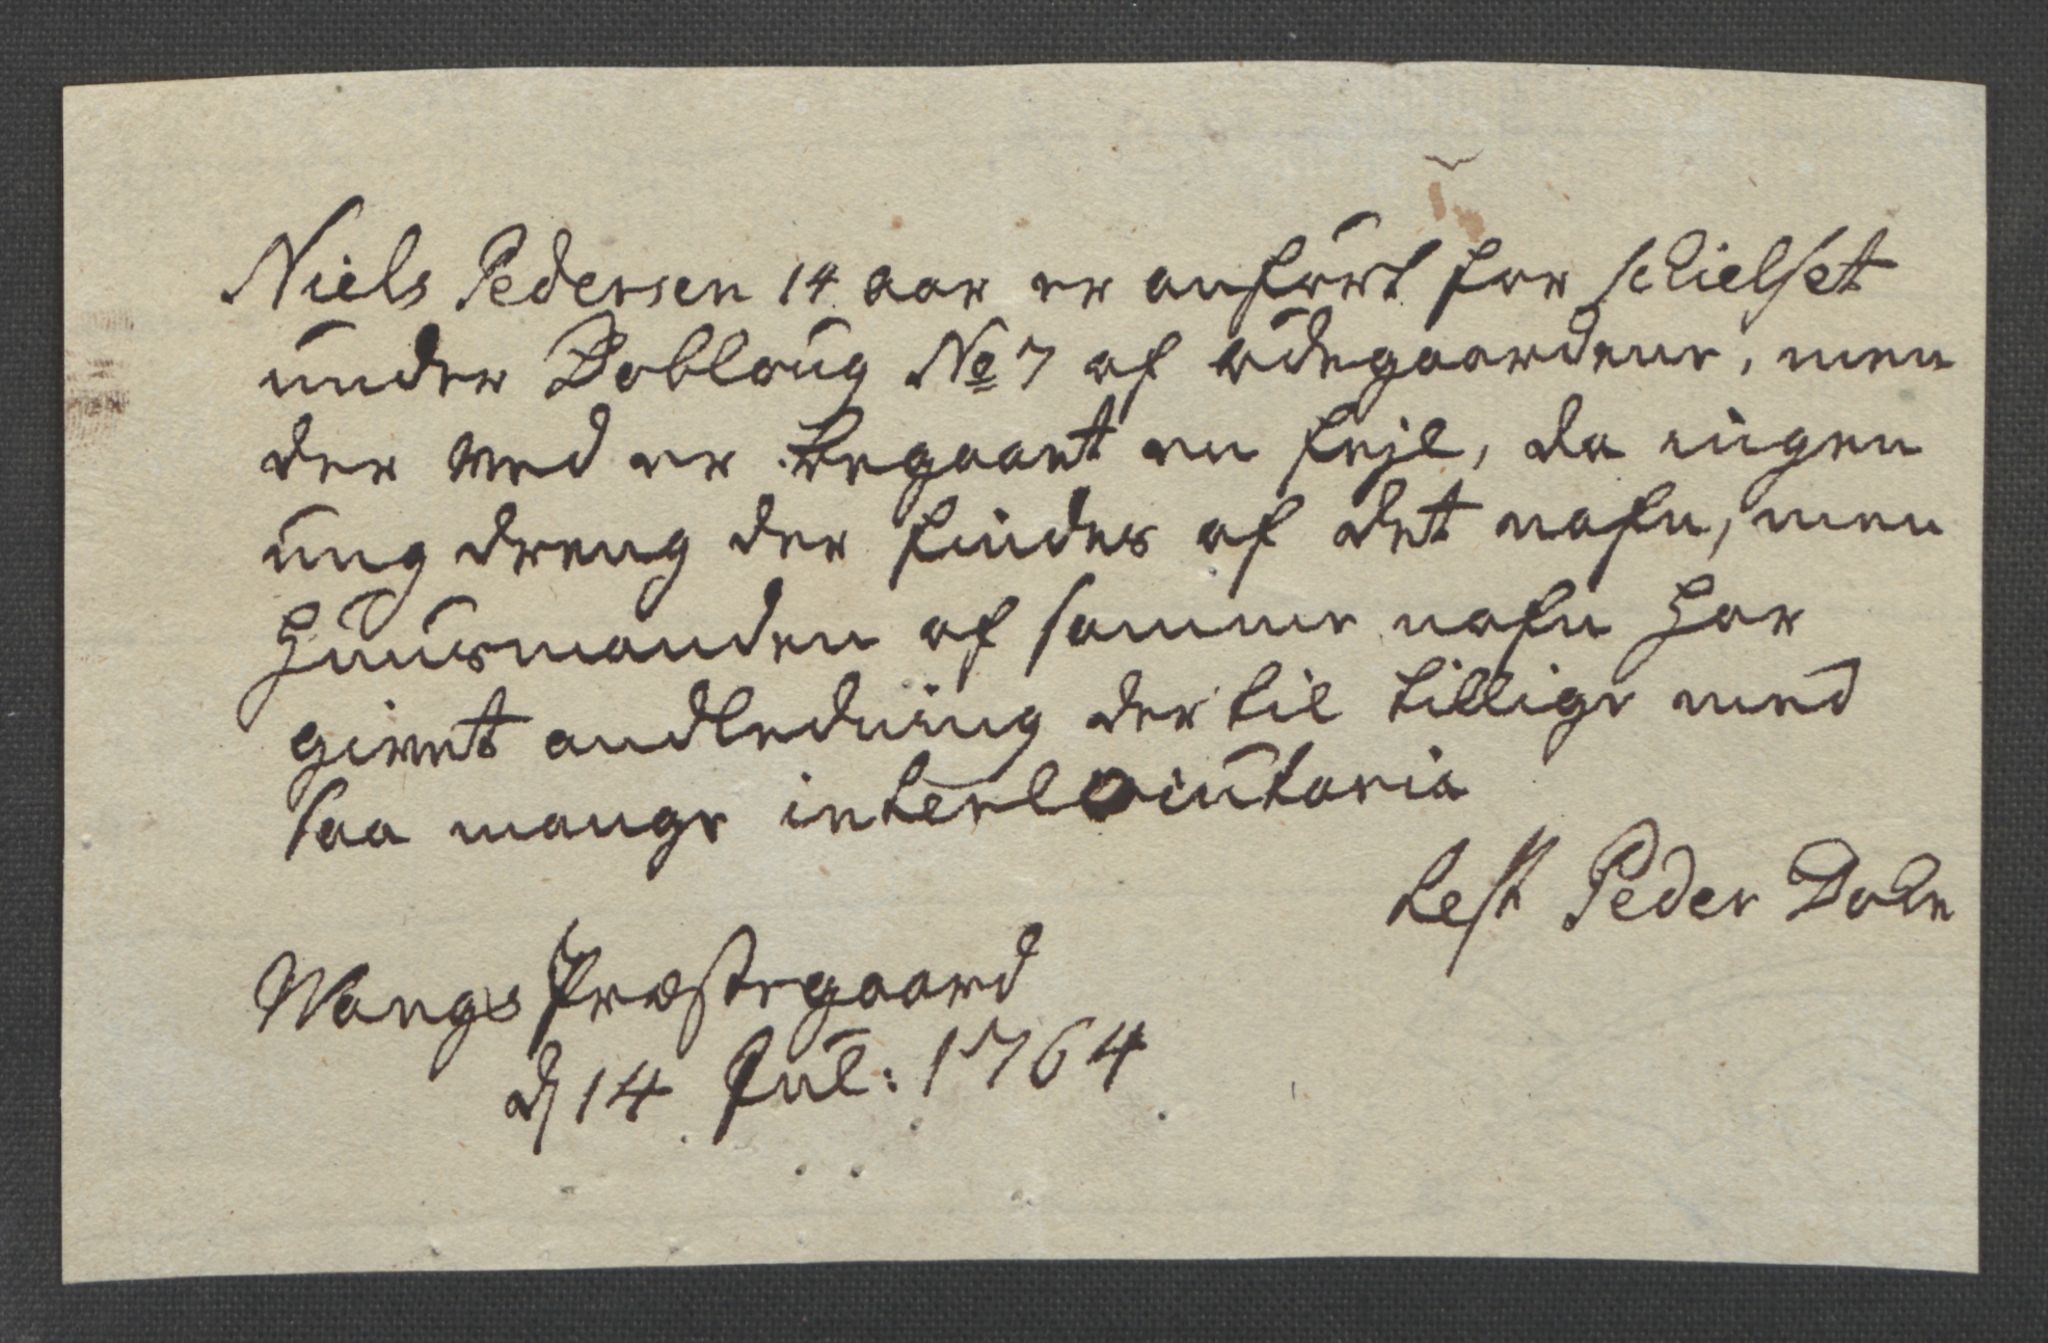 Niels Pedersen 14 aar er anført for schielset
under Dobloug No 7 af ødegaardene, men
der ved er begaaet en fejl, da ingen
ung dreng der findes af det nafn, men
Huusmanden af samme nafn har
givet andledning der til tillige med
saa mange interlocutoria
test Peder Dahn
Wangs Præstegaard
d 14 Jul: 1764